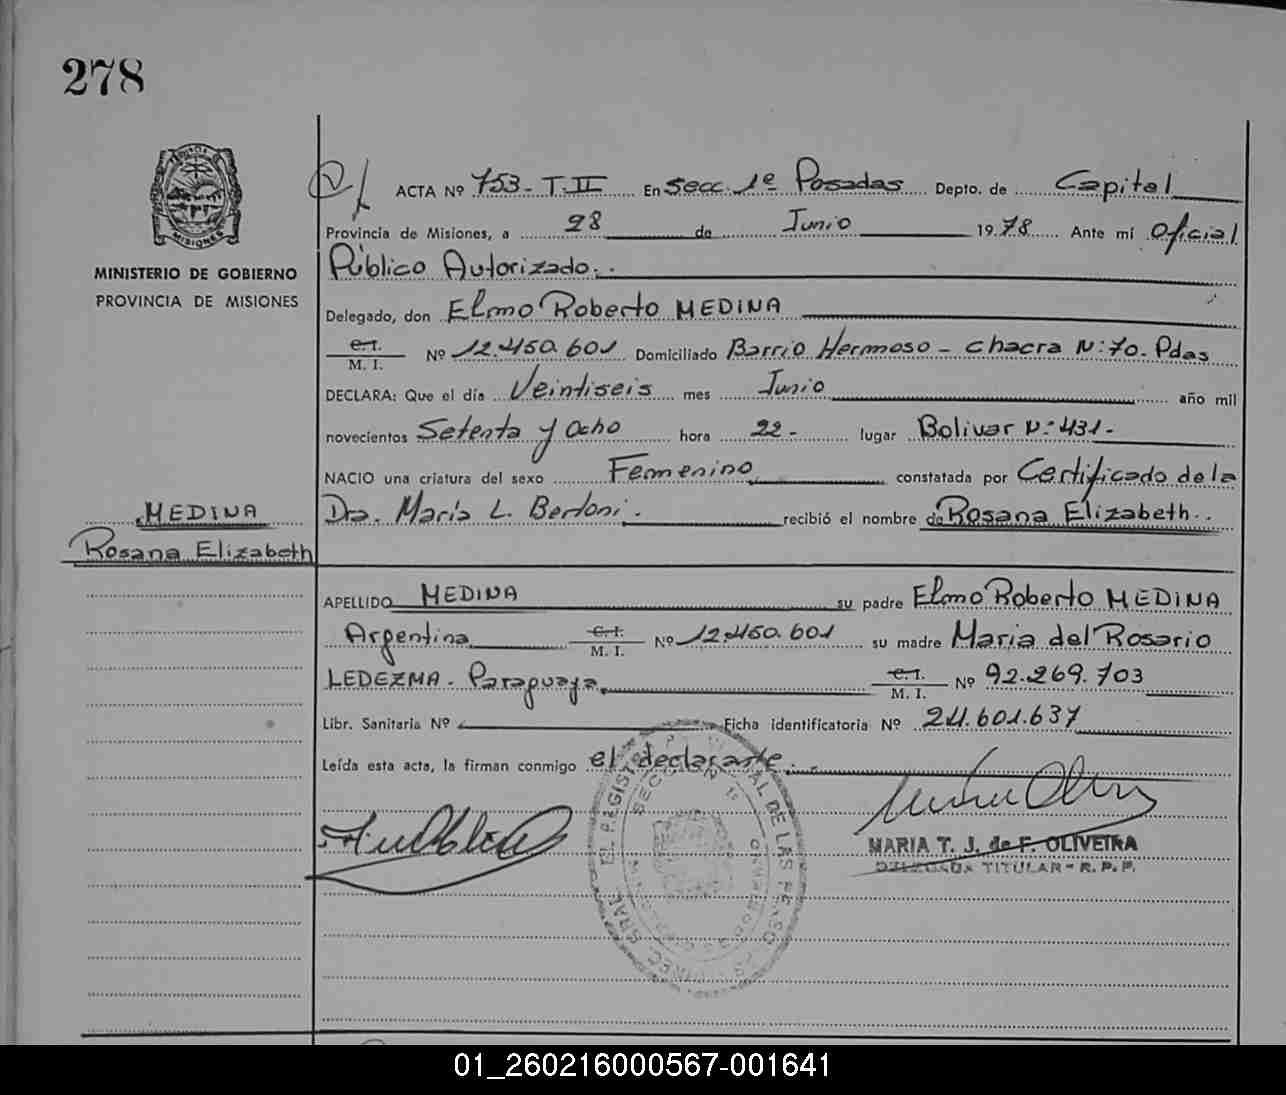 278
MISIONES
MINISTERIO DE GOBIERNO
PROVINCIA DE MISIONES
ACTA Nº 753 - T. II En Secc. 1º Posadas Depto. de Capital
Provincia de Misiones, a 28 de Junio 1978 Ante mí Oficial
Público Autorizado.
Delegado, don Elmo Roberto MEDINA
C.I.
M. I. Nº 12.450.601 Domiciliado Barrio Hermoso - Chacra Nº: 70. Pdas
DECLARA: Que el día Veintiseis mes Junio año mil
novecientos Setenta y Ocho hora 22 - lugar Bolivar Nº: 431 -
NACIO una criatura del sexo Femenino constatada por Certificado de la
MEDINA
Dra. María L. Bertoni. recibió el nombre de Rosana Elizabeth..
Rosana Elizabeth
APELLIDO MEDINA su padre Elmo Roberto MEDINA
Argentina C.I. M. I. Nº 12.450.601 su madre Maria del Rosario
LEDEZMA - Paraguaya C.I. M. I. Nº 92.269.703
Libr. Sanitaria Nº Ficha identificatoria Nº 24.601.637
Leída esta acta, la firman conmigo el declarante. -
MARIA T. J. de F. OLIVEIRA
DELEGADA TITULAR - R. P. P.
DE LAS
01_260216000567-001641